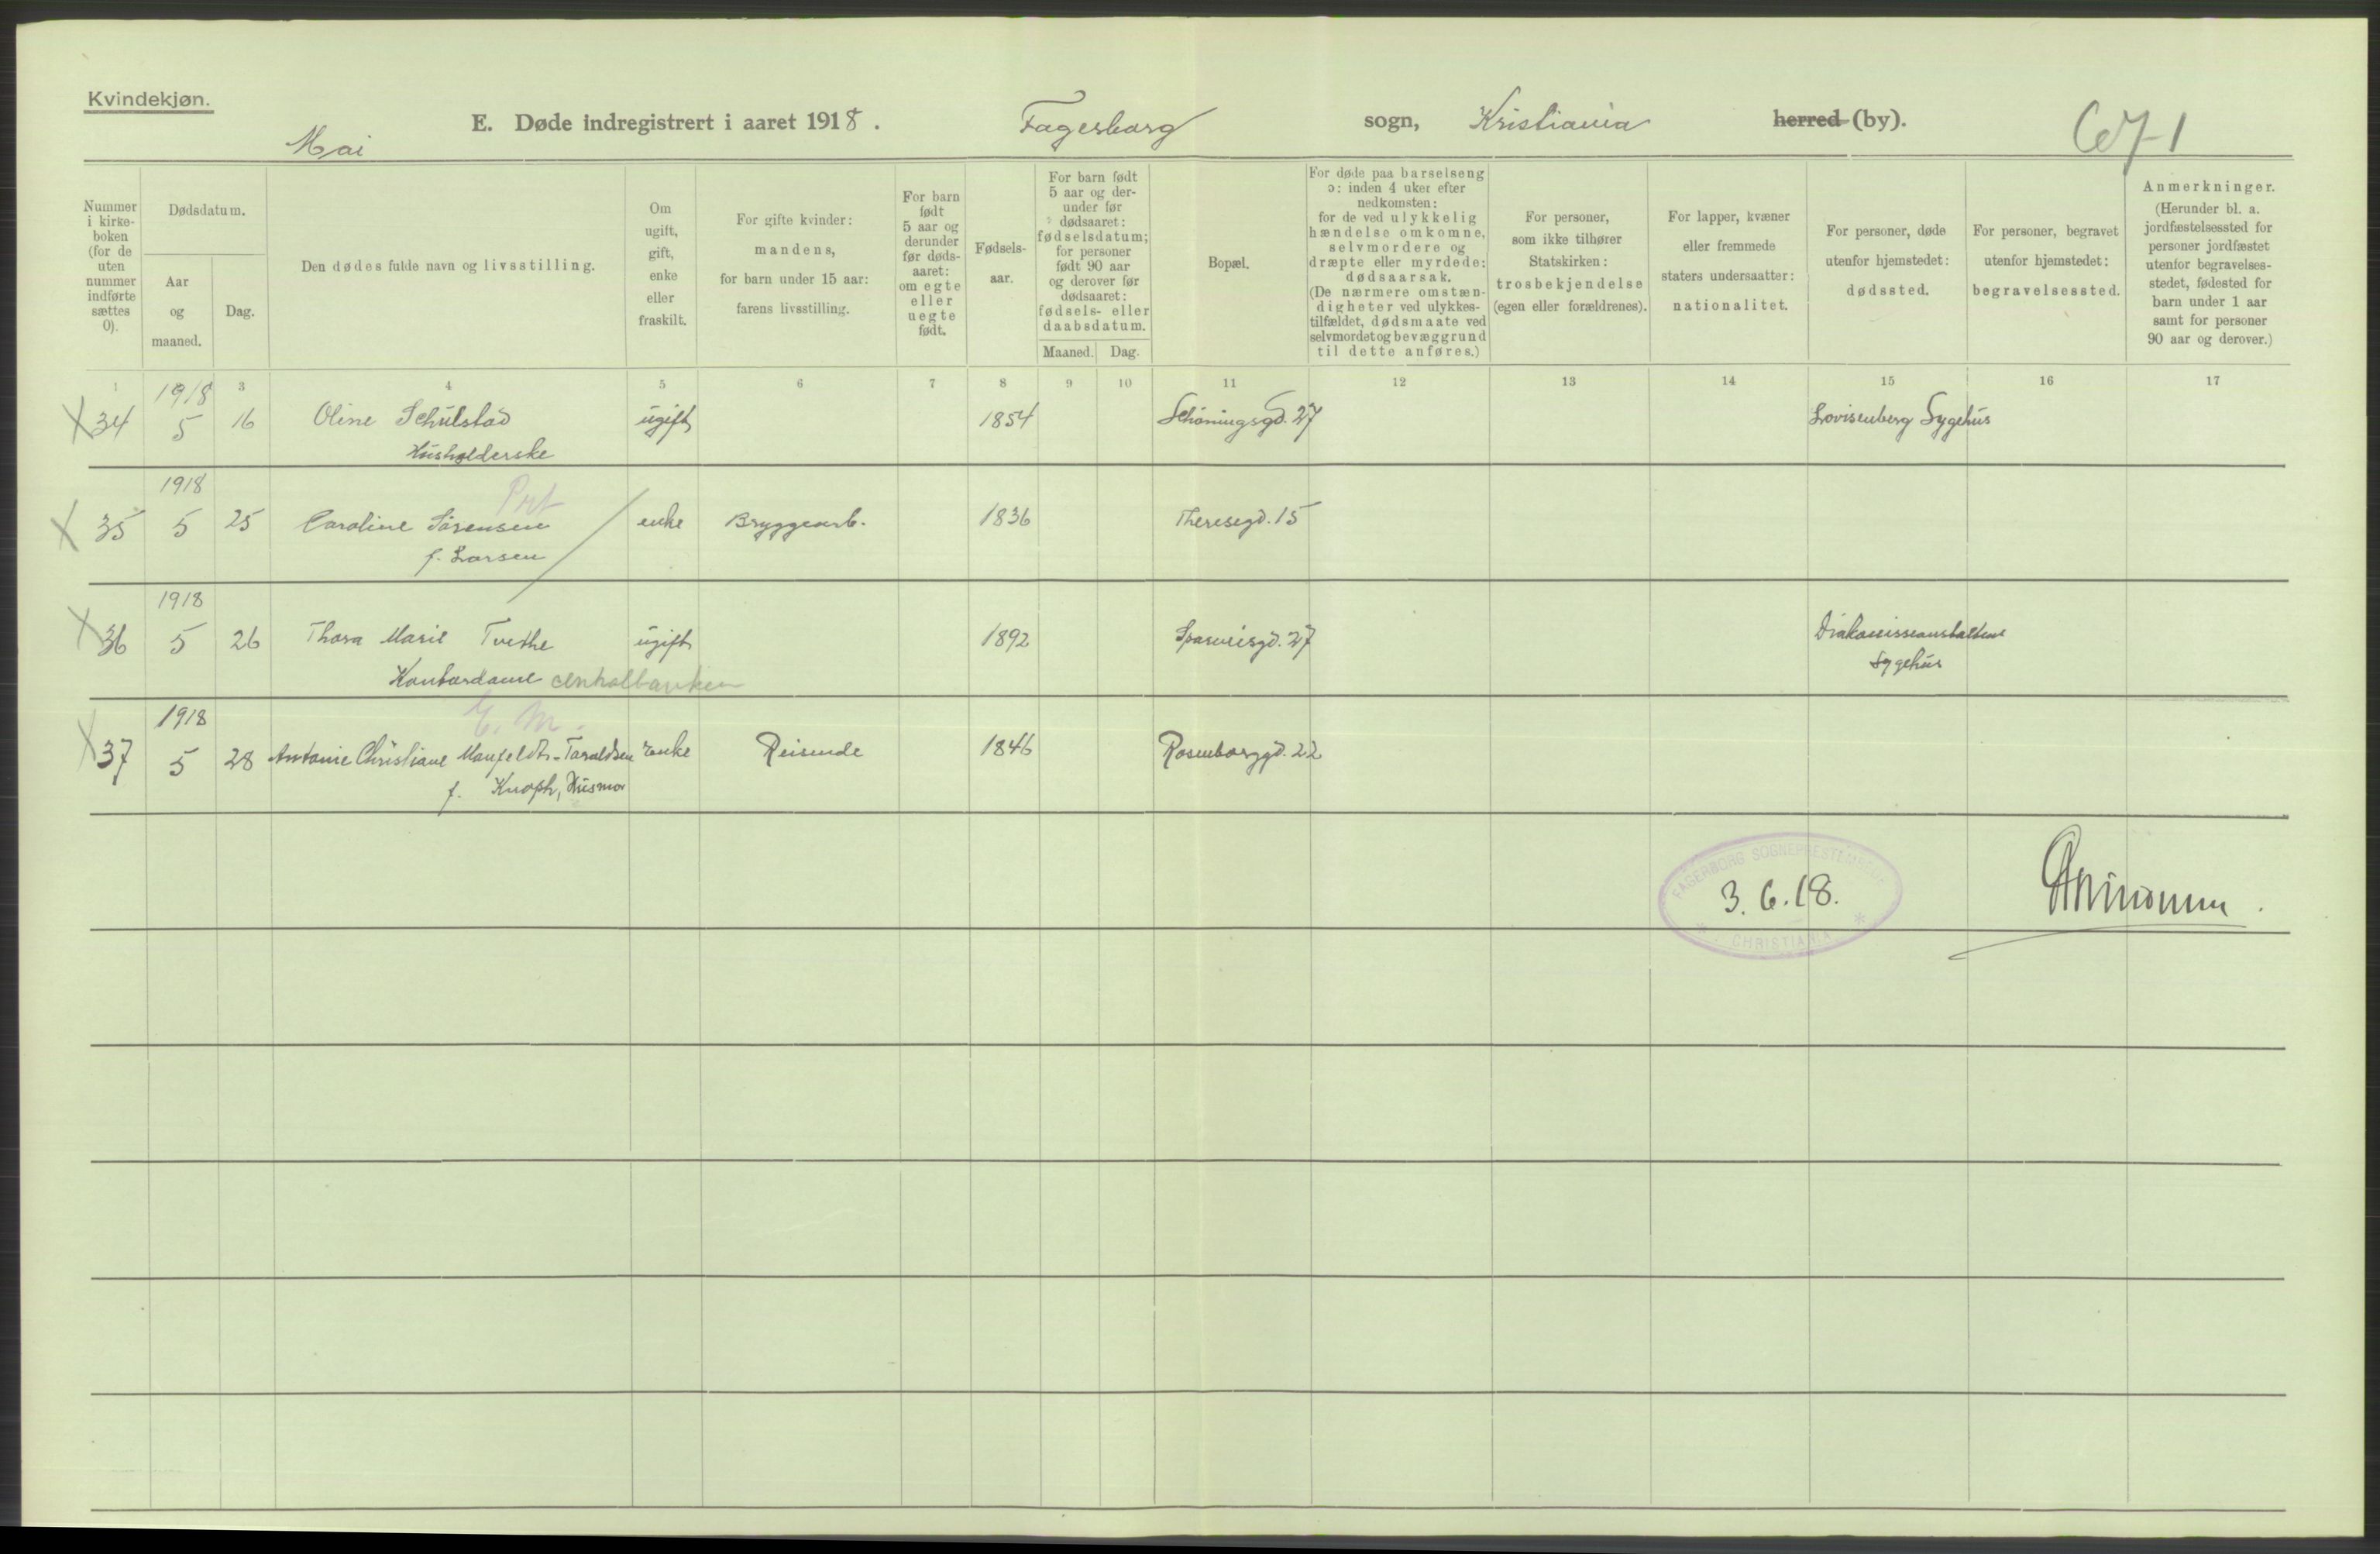 Kvindekjøn.
E. Døde indregistrert i aaret 1918. Fagerborg sogn, Kristiania herred (by).
Mai
Nummer i kirkeboken (for de uten nummer indførte sættes 0).
Dødsdatum.
Aar og maaned.
Dag.
Den dødes fulde navn og livsstilling.
Om ugift, gift, enke eller fraskilt.
For gifte kvinder: mandens, for barn under 15 aar: farens livsstilling.
For barn født 5 aar og derunder før dødsaaret: om egte eller uegte født.
Fødselsaar.
For barn født 5 aar og derunder før dødsaaret: fødselsdatum; for personer født 90 aar og derover før dødsaaret: fødsels- eller daabsdatum.
Maaned. Dag.
Bopæl.
For døde paa barselseng ɔ: inden 4 uker efter nedkomsten: for de ved ulykkelig hændelse omkomne, selvmordere og dræpte eller myrdede: dødsaarsak. (De nærmere omstændigheter ved ulykkestilfældet, dødsmaate ved selvmordet og bevæggrund til dette anføres.)
For personer, som ikke tilhører Statskirken: trosbekjendelse (egen eller forældrenes).
For lapper, kvæner eller fremmede staters undersaatter: nationalitet.
For personer, døde utenfor hjemstedet: dødssted.
For personer, begravet utenfor hjemstedet: begravelsessted.
Anmerkninger. (Herunder bl. a. jordfæstelsessted for personer jordfæstet utenfor begravelsesstedet, fødested for barn under 1 aar samt for personer 90 aar og derover.)
1 3 4 5 6 7 8 9 10 11 12 13 14 15 16 17
1918
34 5 16 Oline Schulstad ugift 1854 Schøningsgd. 27 Lovisenberg Sygehus
Husholderske
1918
35 5 25 Caroline Sørensen enke Bryggearb. 1836 Theresegd. 15
f. Larsen
1918
36 5 26 Thora Marie Tvethe ugift 1892 Sporveisgd. 27 Diakonisseanstaltens
Kontordame Centralbanken Sygehus
E. M.
1918
37 5 28 Antonie Christiane Manfeldt-Taraldsen Enke Reisende 1846 Rosenborggd. 22
f. Knoph, Husmor
FAGERBORG SOGNEPRESTEMBEDE
3.6.18.
CHRISTIANIA